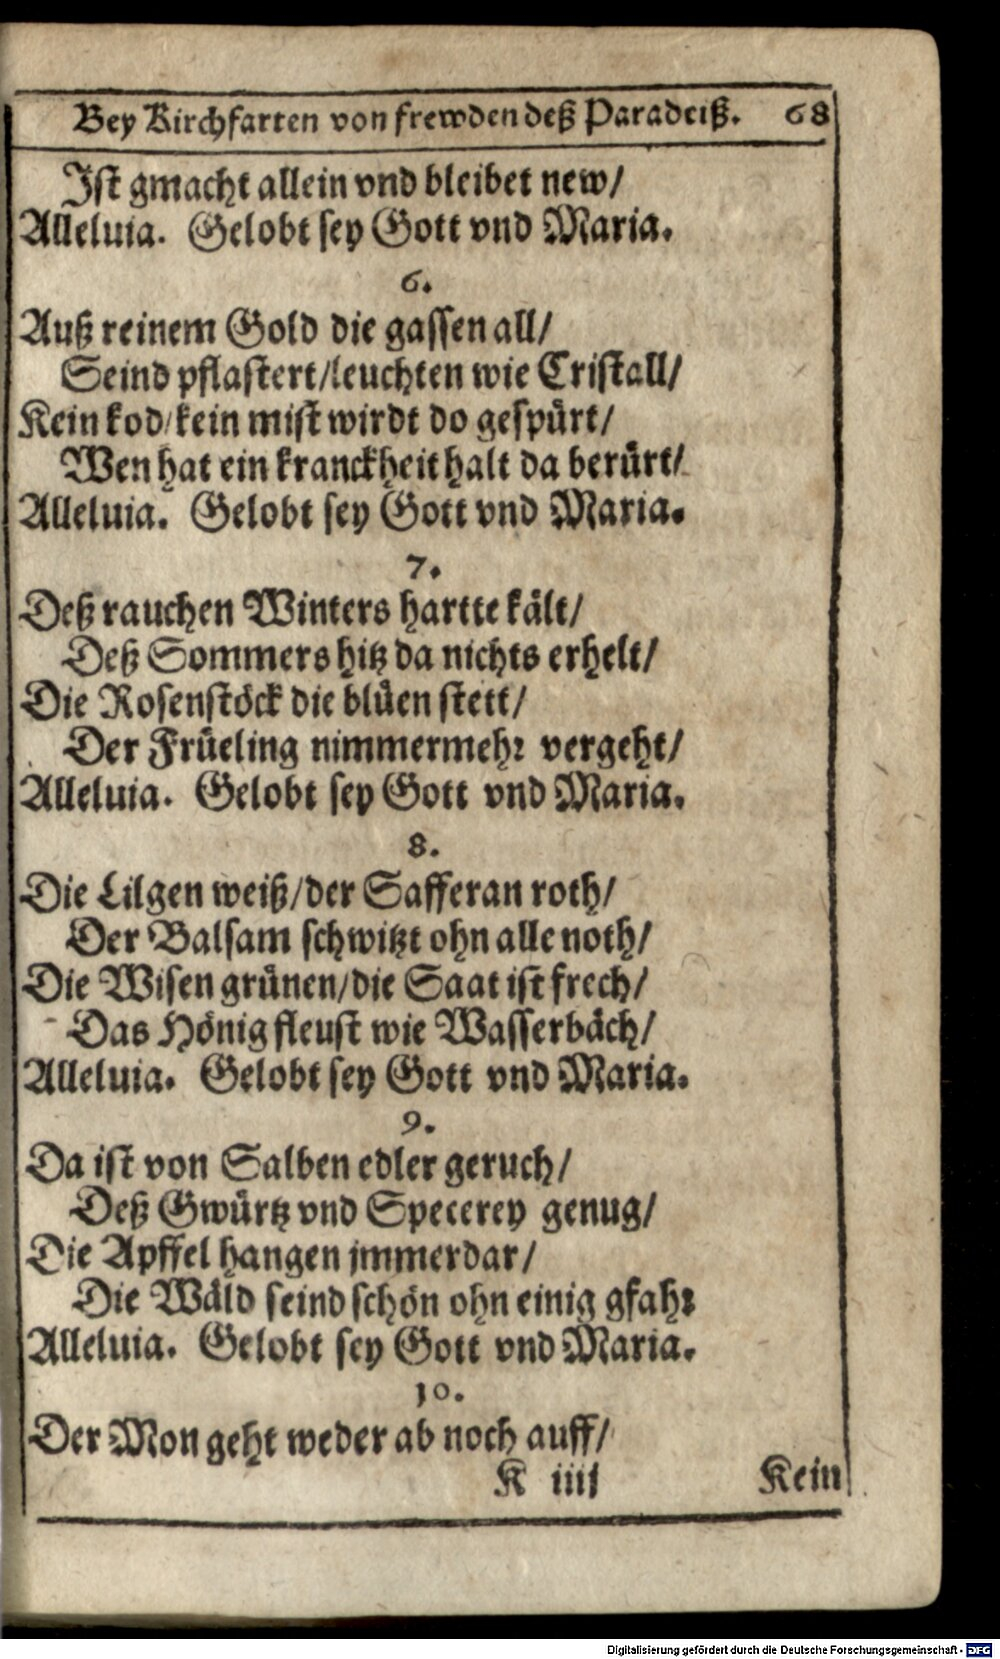 Bey Kirchfarten von frewden deß Paradeiß. 68
Ist gmacht allein vnd bleibet new/
Alleluia. Gelobt sey Gott vnd Maria.
6.
Auß reinem Gold die gassen all/
Seind pflastert/leuchten wie Cristall/
Kein kod/kein mist wirdt do gespürt/
Wen hat ein kranckheit halt da berürt/
Alleluia. Gelobt sey Gott vnd Maria.
7.
Deß rauchen Winters hartte kält/
Deß Sommers hitz da nichts erhelt/
Die Rosenstöck die blüen stett/
Der Früeling nimmermehr vergeht/
Alleluia. Gelobt sey Gott vnd Maria.
8.
Die Lilgen weiß/der Safferan roth/
Der Balsam schwitzt ohn alle noth/
Die Wisen grünen/die Saat ist frech/
Das Hönig fleust wie Wasserbäch/
Alleluia. Gelobt sey Gott vnd Maria.
9.
Da ist von Salben edler geruch/
Deß Gwürtz vnd Specerey genug/
Die Apffel hangen jmmerdar/
Die Wäld seind schön ohn einig gfahr
Alleluia. Gelobt sey Gott vnd Maria.
10.
Der Mon geht weder ab noch auff/
K iiij Kein
Digitalisierung gefördert durch die Deutsche Forschungsgemeinschaft - DFG